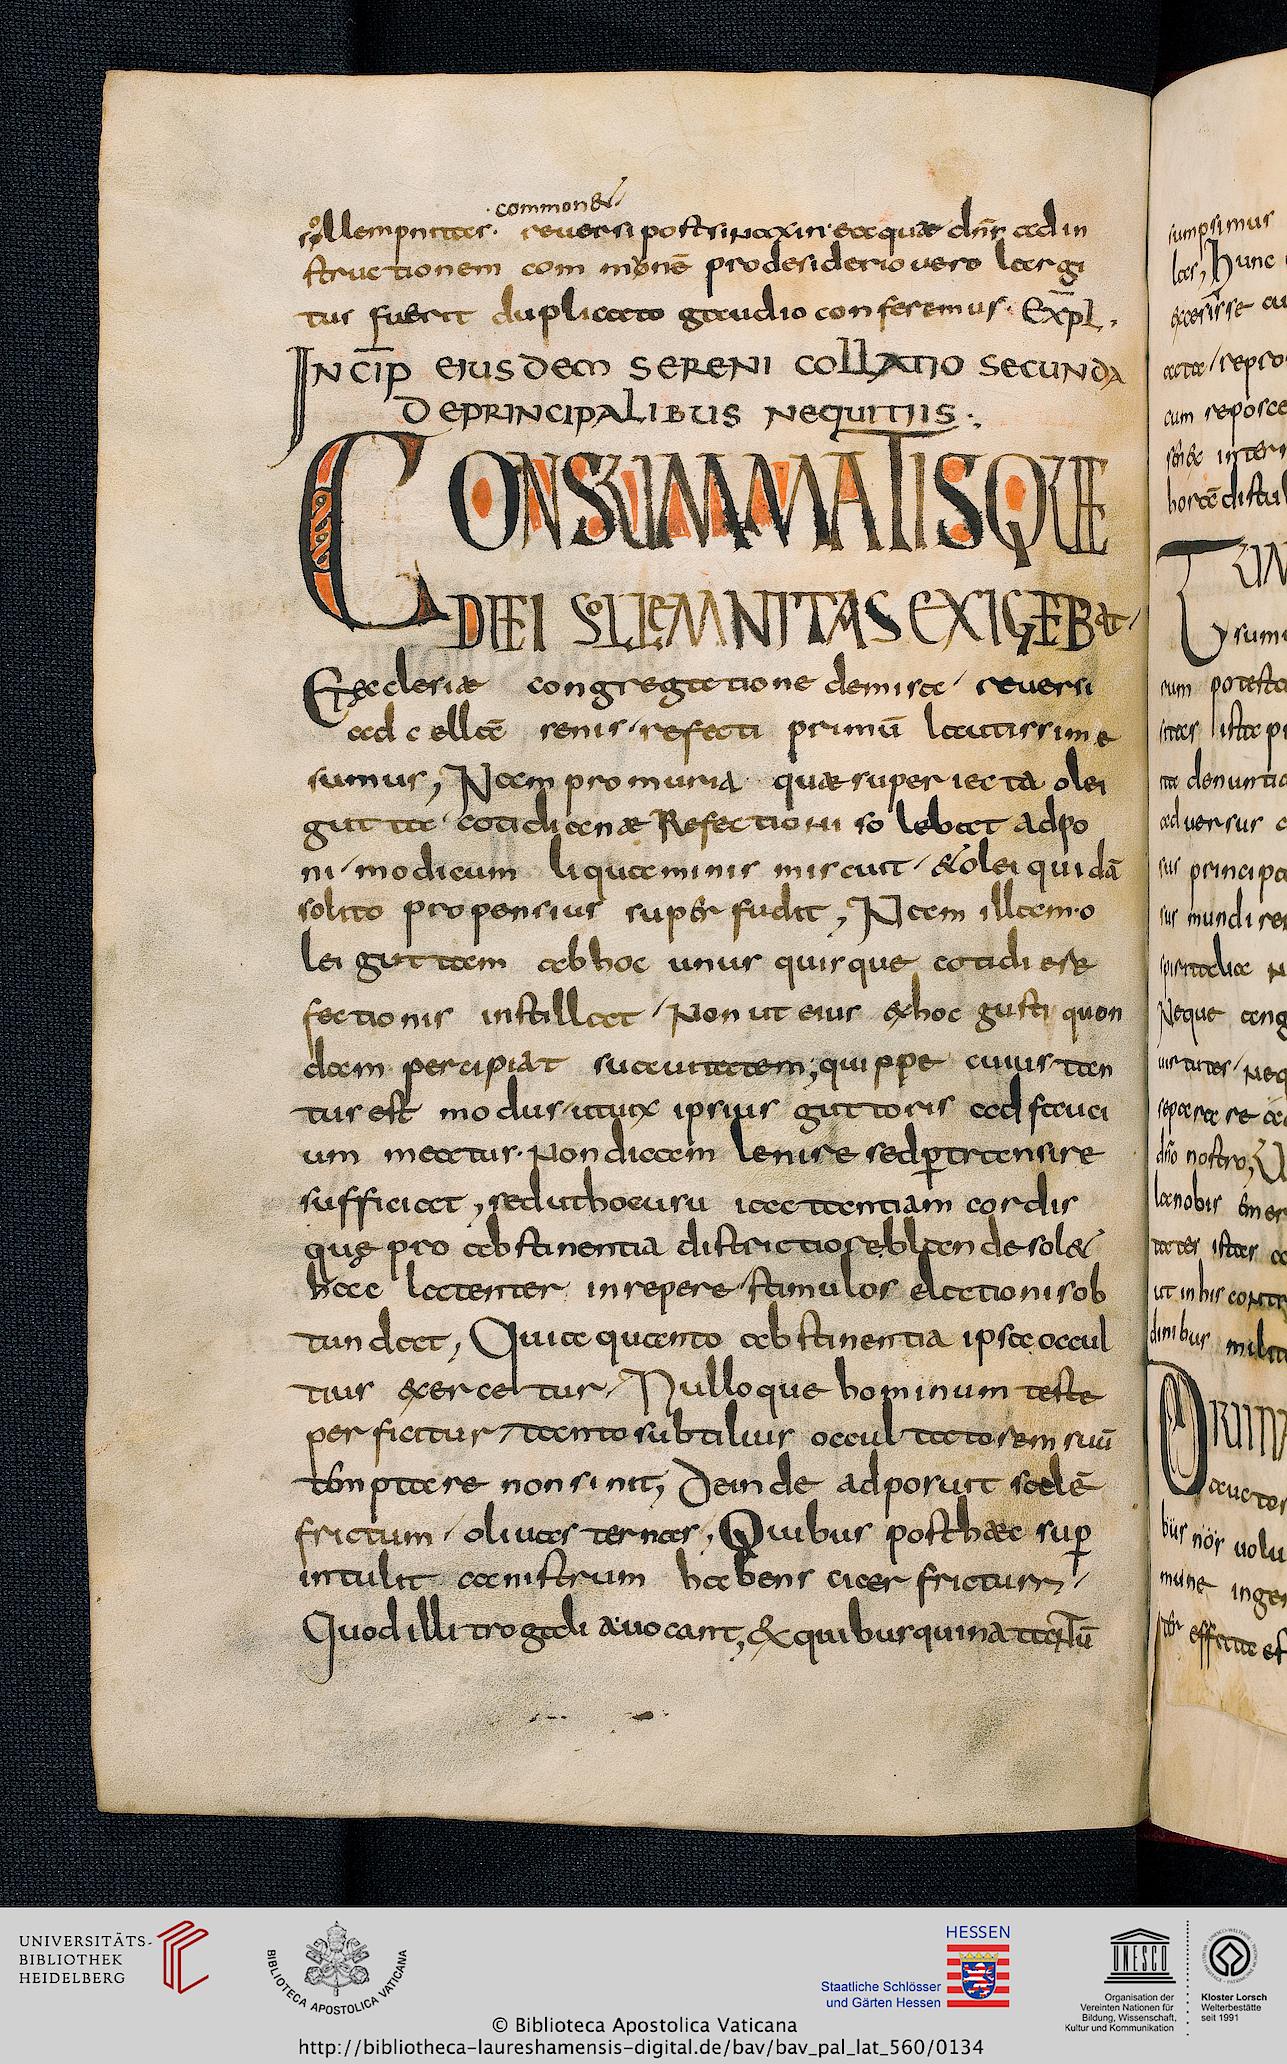 commonet
sollempnitas. reuersi post sinaxin ea quæ dn̄s ad in
structionem com monē pro desiderio uero largi
tus fuerit duplicato gaudio conferemus. Expl.
INCIP EIUSDEM SERENI COLLATIO SECUNDA
DE PRINCIPALIBUS NEQUITIIS:.
CONSUMMATISQUE
DIEI SOLLEMNITAS EXIGEBat
Ecclesiæ congregatione demisa reuersi
ad cellā senis refecti primū lautissime
sumus, Nam pro muria quæ superiecta olei
gutta cotidianæ Refectioni solebat adpo
ni modicum liquaminis miscuit & olei quidā
solito propensius superfudit, Nam illam o
lei guttam ab hoc unus quisque cotidie re
fectionis instillat Non ut eius ex hoc gusti quon
dam percipiat suauitatem, quippe cuius tan
tus est modus ut uix ipsius guttoris ad fauci
um meatus. Non dicam lenire sed ꝑtransire
sufficiat, sed ut hoc usu iactantiam cordis
quę pro abstinentia districtiore blande solet
hac latenter inrepere stimulos elationis ob
tundat, Quia quanto abstinentia ipsa occul
tius exercetur Nulloque hominum teste
perficitur tanto subtilius occultatorem suū
temptare non sinit, Deinde adposuit salē
frictum oliuas ternas, Quibus posthæc suꝑ
intulit canistrum habens cicer frictum
Quod illi trogalia uocant, & quibus quina tantū
sumpsimus
las, Hunc
aduersus
sus principa
sus mundi re
Neque ang
UNIVERSITÄTS-
BIBLIOTHEK
HEIDELBERG
BIBLIOTECA APOSTOLICA VATICANA
HESSEN
Staatliche Schlösser
und Gärten Hessen
UNESCO
Organisation der
Vereinten Nationen für
Bildung, Wissenschaft,
Kultur und Kommunikation
Kloster Lorsch
Welterbestätte
seit 1991
© Biblioteca Apostolica Vaticana
http://bibliotheca-laureshamensis-digital.de/bav/bav_pal_lat_560/0134